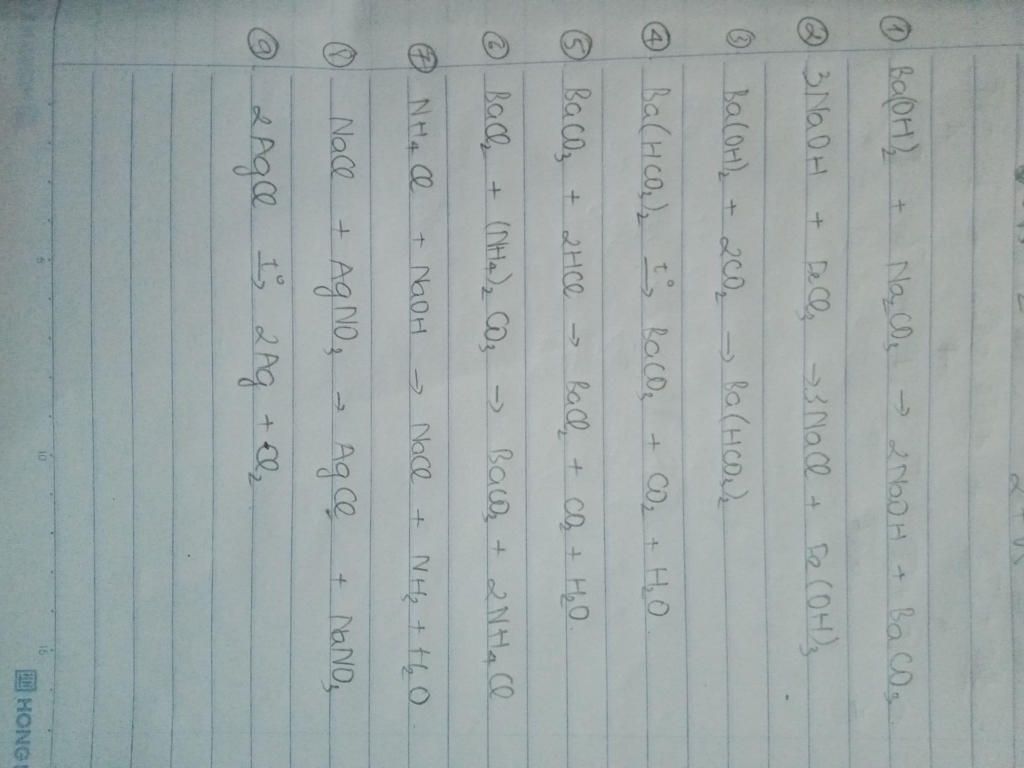 ① Ba(OH)₂ + Na₂CO₃ → 2NaOH + BaCO₃
② 3NaOH + FeCl₃ → 3NaCl + Fe(OH)₃
③ Ba(OH)₂ + 2CO₂ → Ba(HCO₃)₂
④ Ba(HCO₃)₂ t° → BaCO₃ + CO₂ + H₂O
⑤ BaCO₃ + 2HCl → BaCl₂ + CO₂ + H₂O
⑥ BaCl₂ + (NH₄)₂CO₃ → BaCO₃ + 2NH₄Cl
⑦ NH₄Cl + NaOH → NaCl + NH₃ + H₂O
⑧ NaCl + AgNO₃ → AgCl + NaNO₃
⑨ 2AgCl t° → 2Ag + Cl₂
5 10 15
HONG